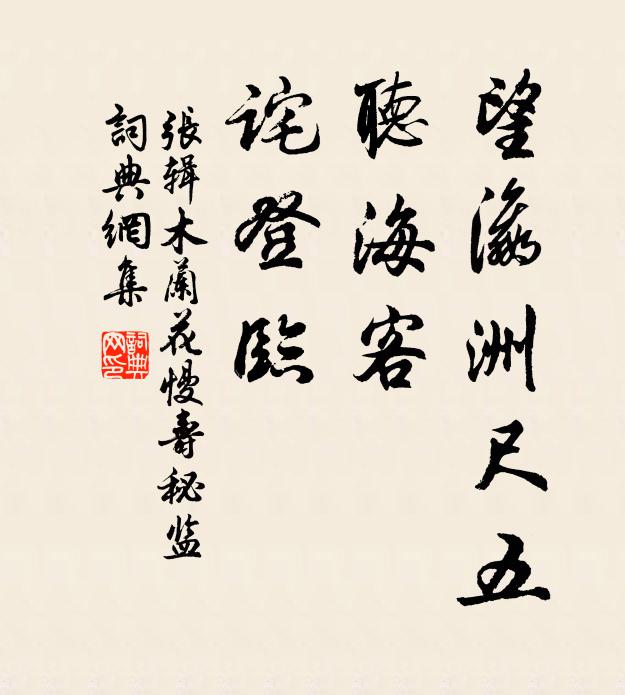 望瀛洲尺五
聽海客
詫登臨
張辑木蘭花慢壽秘监
詞典網集
詞典网印